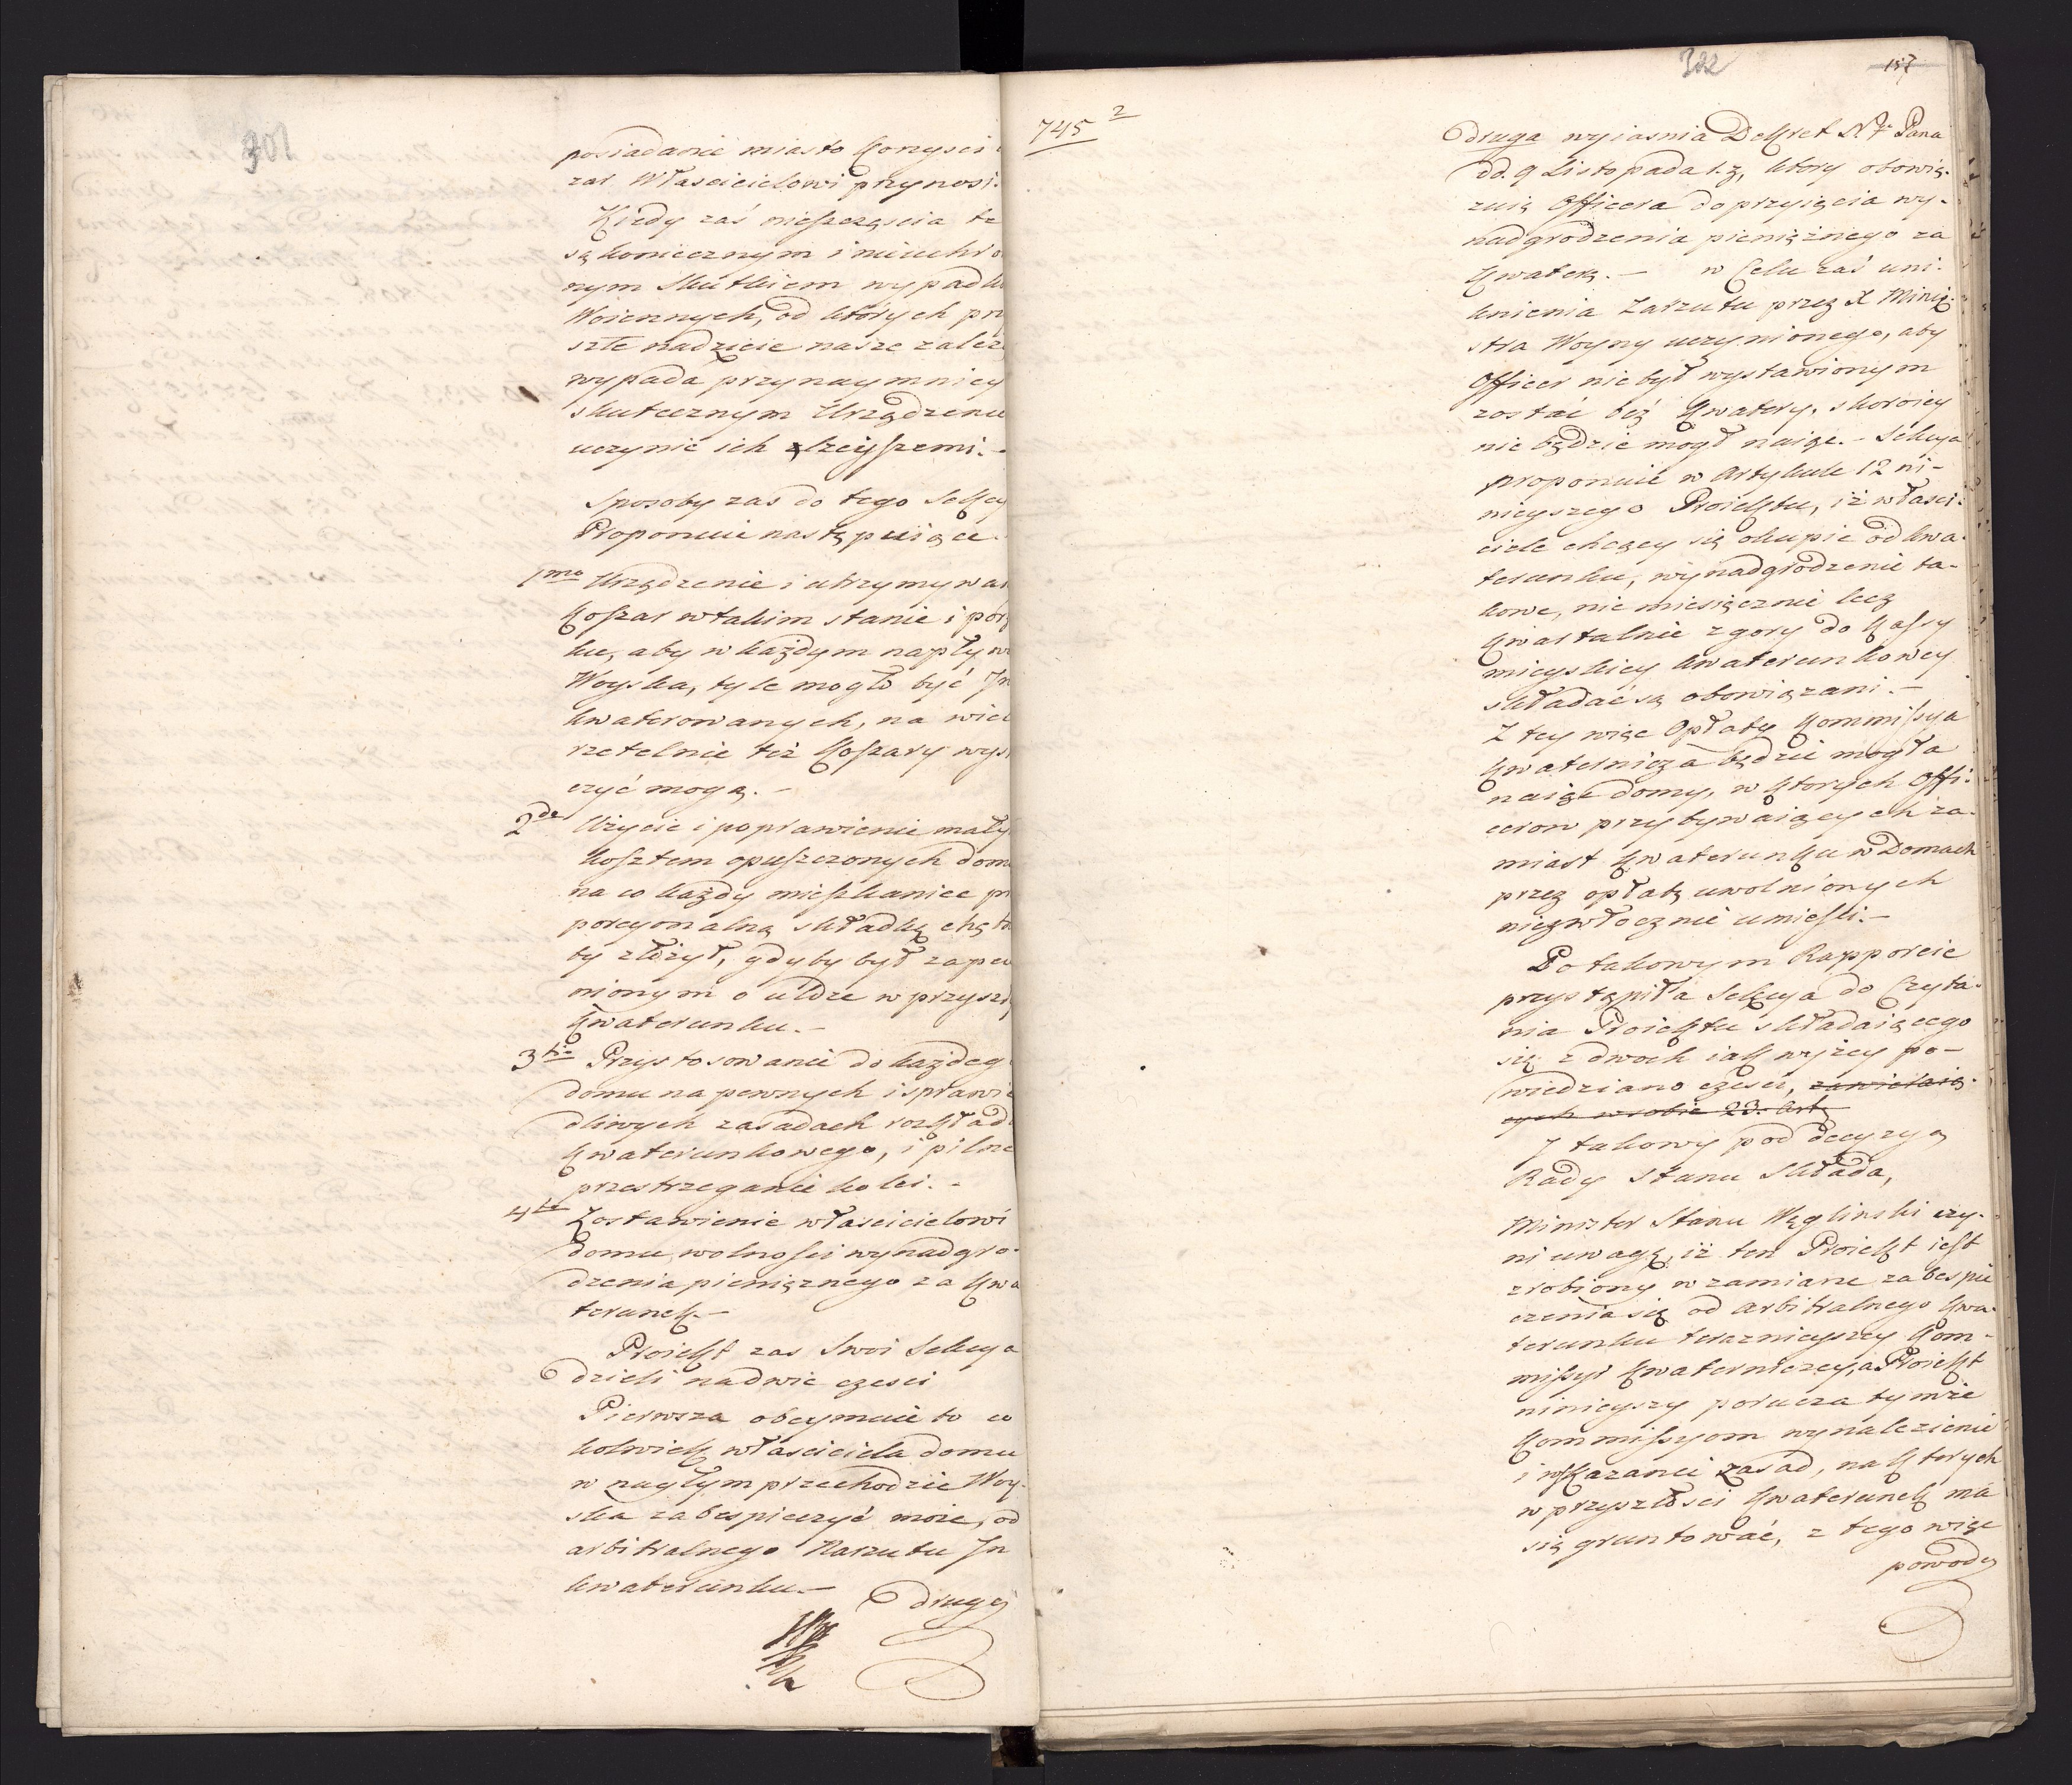 301
posiadanie miasto korzyści
zas Właścicielowi przynosi.
Kiedy zaś nieszczęscia te
są koniecznym i nieuchro
nym skutkiem wypadk
Woiennych, od których prz
szłe nadzieie nasze zależ
wypada przynaymniey
skutecznym Urządzeniu
uczynic ich lżeyszemi. -
Sposoby zas do tego Sekcy
Proponuie następuiące.
1mo Urządzenie i utrzymywan
Koszar w takim stanie i porz
ku, aby w każdym napływ
Woyska, tyle mogło być In
kwaterowanych, na wiel
rzetelnie też Koszary wys
czyć mogą. -
2do Użycie i poprawienie mały
kosztem opuszczonych dom
na co każdy mieszkaniec pr
porcyonalną składkę chętn
by złożył, gdyby był zapew
nionym o uldze w przyszł
kwaterunku. -
3tio Przystosowanie do każdeg
domu na pewnych i sprawie
dliwych zasadach rozkład
kwaterunkowego, i pilne
przestrzeganie kolei. -
4to Zostawienie właścicielowi
domu wolności wynadgro-
dzenia pieniężnego za kwa
terunek. -
Proiekt zas Swoi Sekcya
dzieli na dwie częsci
Pierwsza obeymuie to co
kolwiek właściciela domu
w nagłym przechodzie Woy-
ska zabespieczyć może, od
arbitralnego Narzutu In
kwaterunku. -
druga
302
157
745 2
druga wyiasnia Dekret N. Pana
dd. 9 Listopada r. z, ktory obowią-
zuię Officera do przyięcia wy-
nadgrodzenia pieniężnego za
kwaterę. - w Celu zaś uni-
knienia Zarzutu przez X Mini-
stra Woyny uczynionego, aby
Officer nie był wystawionym
zostać beż kwatery, skoroiey
nie będzie mogł naiąc. - Sekcya
proponuie w Artykule 12 ni-
nieyszego Proiektu, iż właści-
ciele chcący się okupic od kwa-
terunku, wynadgrodzenie ta-
kowe, nie miesięcznie lecz
kwartalnie z gory do kassy
mieyskiey kwaterunkowey
składać są obowiązani. -
Z tey więc Opłaty Kommissya
kwaternicza będzie mogła
naiąc domy, w ktorych Offi-
cerow przybywaiących za-
miast kwaterunku w Domach
przez opłatę uwolnionych
niezwłocznie umieści. -
Po takowym Rapporcie
przystąpiła Sekcya do Czyta-
nia Proiektu składaiącego
się z dwoch iak wyżey po-
wiedziano części, zawieraią-
cych w sobie 23. Art.
I takowy pod decyzyą
Rady Stanu składa,
Minister Stanu Węgliński czy-
ni uwagę, iż ten Proiekt iest
zrobiony w zamiarze zabespie
czenia się od arbitralnego kwa-
terunku teraznieyszey Kom-
missyi kwaterniczey, a Proiekt
ninieyszy porucza tymże
Kommissyom wynalezienie
i wskazanie zasad, na ktorych
w przyszłości kwaterunek ma
się gruntować, z tego więc
powody